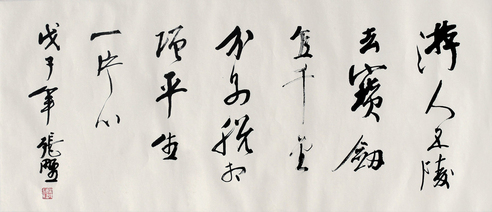 游人五陵
去寶劍
直千金
分手脱相
贈平生
一片心
戊子年 張